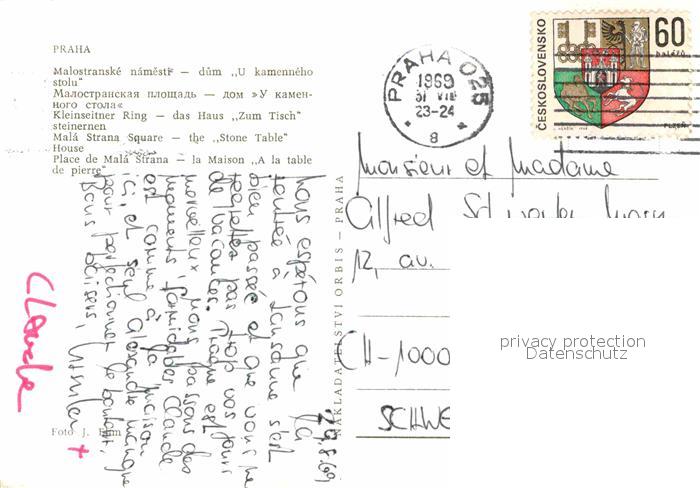 PRAHA
Malostranské náměstí — dům „U kamenného
stolu"
Малостранская площадь — дом »У камен-
ного стола«
Kleinseitner Ring — das Haus „Zum Tisch"
steinernen
Malá Strana Square — the „Stone Table"
House
Place de Malá Strana — la Maison „A la table
de pierre"
ČESKOSLOVENSKO
60
HALÉŘŮ
PLZEŇ
PRAHA 025
1969
31 VIII
23-24
8
Monsieur et Madame
Alfred
12, av.
CH-1000
SCHWE
privacy protection
Datenschutz
NAKLADATELSTVÍ ORBIS — PRAHA
29.8.69
Nous espérons que la
rentrée à Lausanne s'est
bien passée et que vous ne
regrettez pas trop vos jours
de vacances. Prague est
merveilleux, nous passons des
moments formidables. Claude
est comme à la maison
ici, et seul Alexandre manque
pour perfectionner le bonheur.
Bons baisers,
+
Claude
Foto J. Ehm